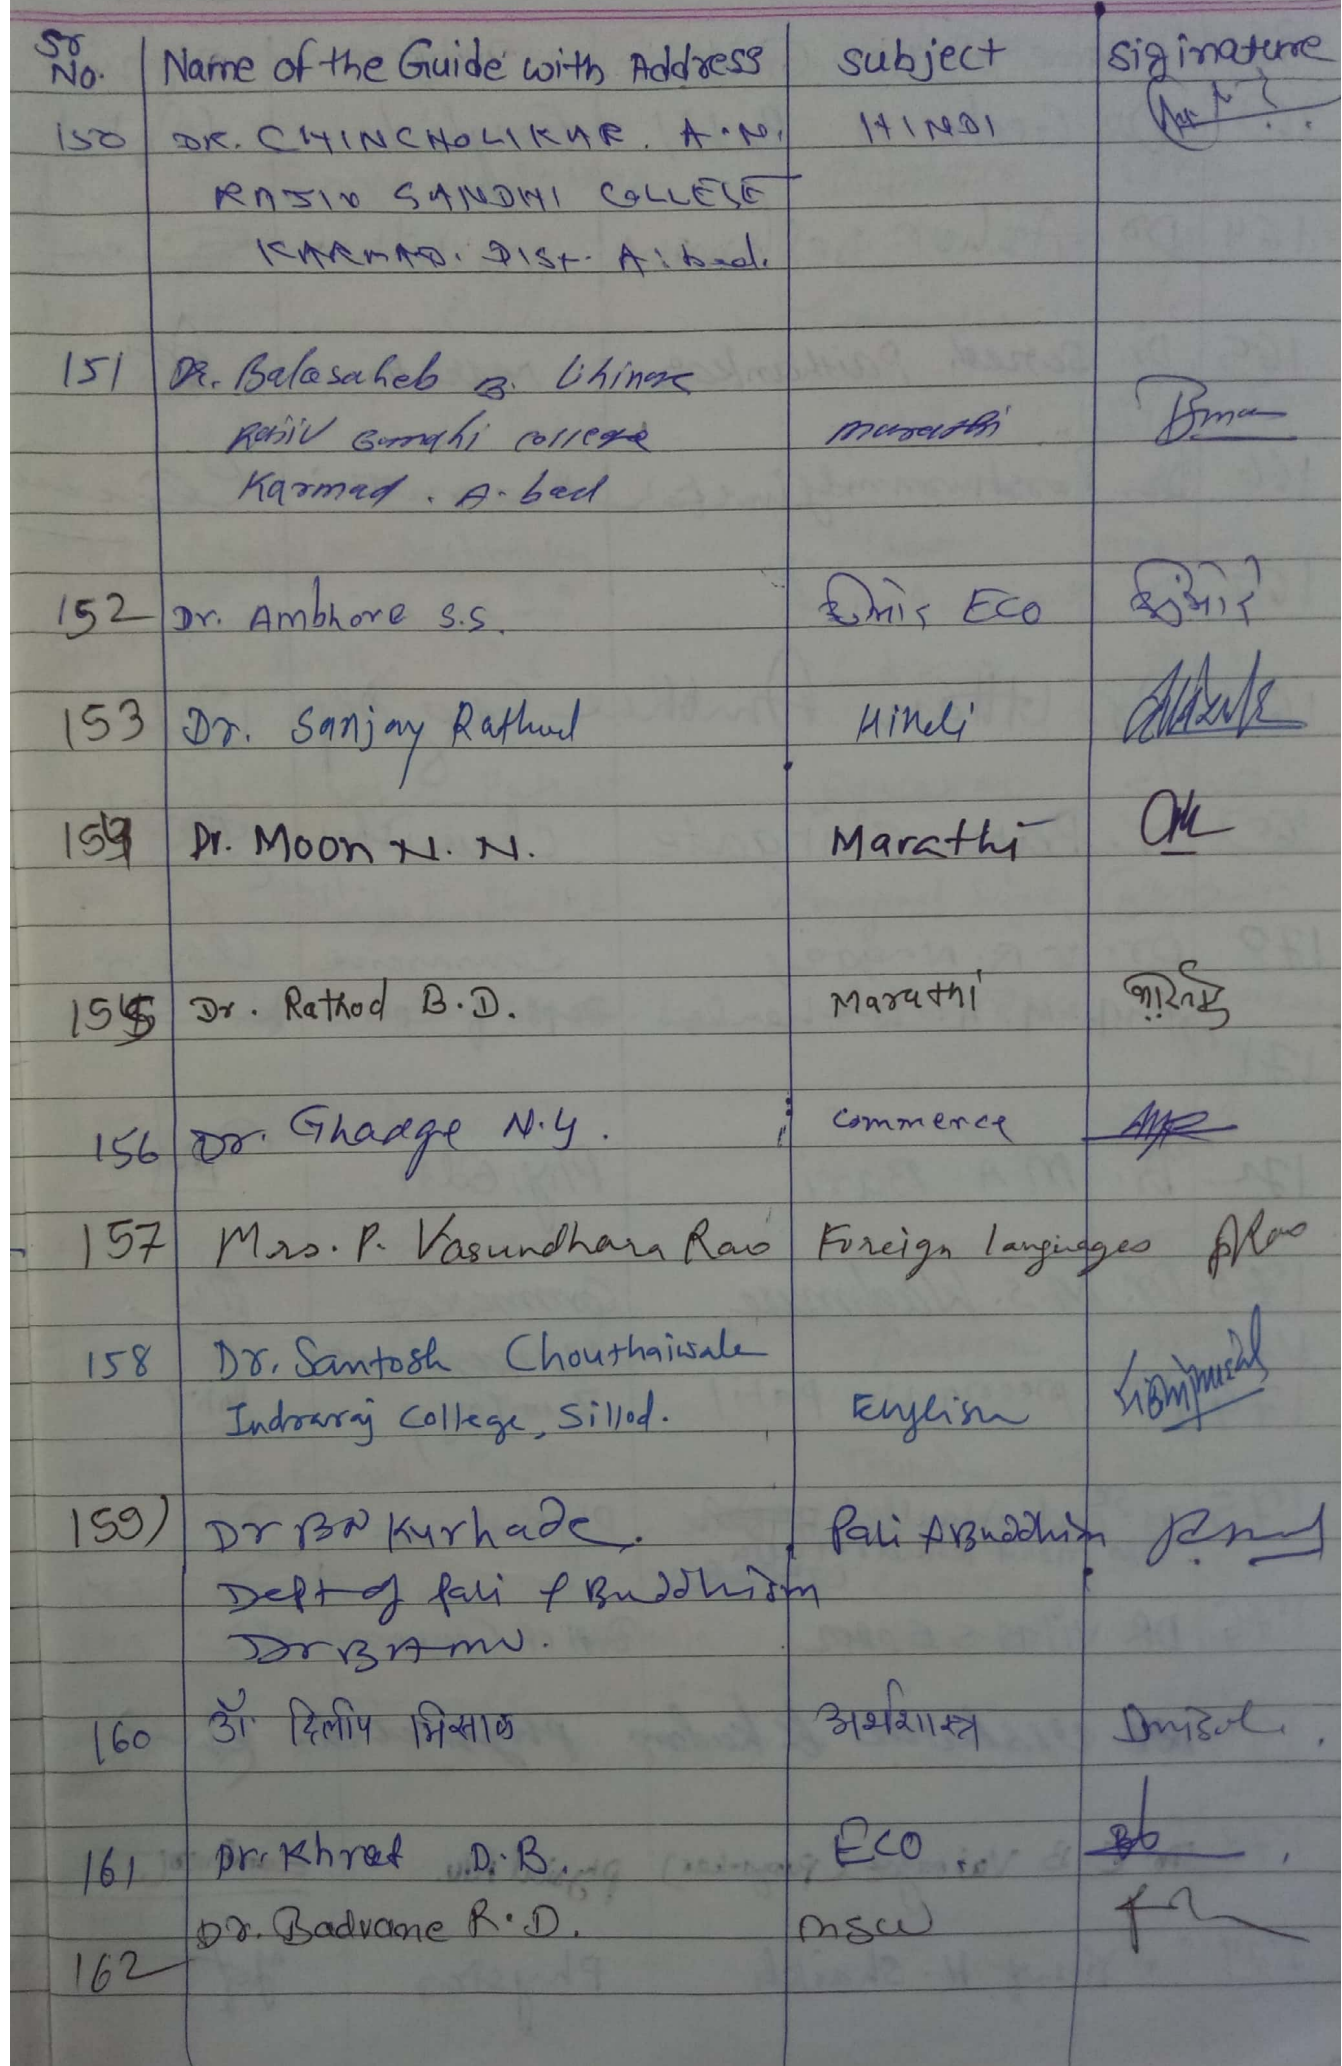 Sr No. Name of the Guide with Address Subject Siginature
150 DR. CHINCHOLIKAR. A.N. HINDI
RAJIV GANDHI COLLEGE
KARMAD. DIST. A:bad.
151 Dr. Balasaheb B. Lihinar
Rajiv Gandhi college marathi
Karmad. A-bad
152 Dr. Ambhore S.S. ECO अंभोरे
153 Dr. Sanjay Rathod Hindi
154 Dr. Moon N. N. Marathi
155 Dr. Rathod B.D. Marathi
156 Dr. Ghadge N.Y. Commerce
157 Mrs. P. Vasundhara Rao Foreign languages PRao
158 Dr. Santosh Chouthaiwale
Indraraj College, Sillod. English
159) Dr BN Kurhade. Pali & Buddhism
Dept of Pali & Buddhism
Dr BAMU.
160 डॉ दिलीप मिसाळ अर्थशास्त्र
161 Dr. Khrat D.B. ECO
162 Dr. Badvane R.D. MSW